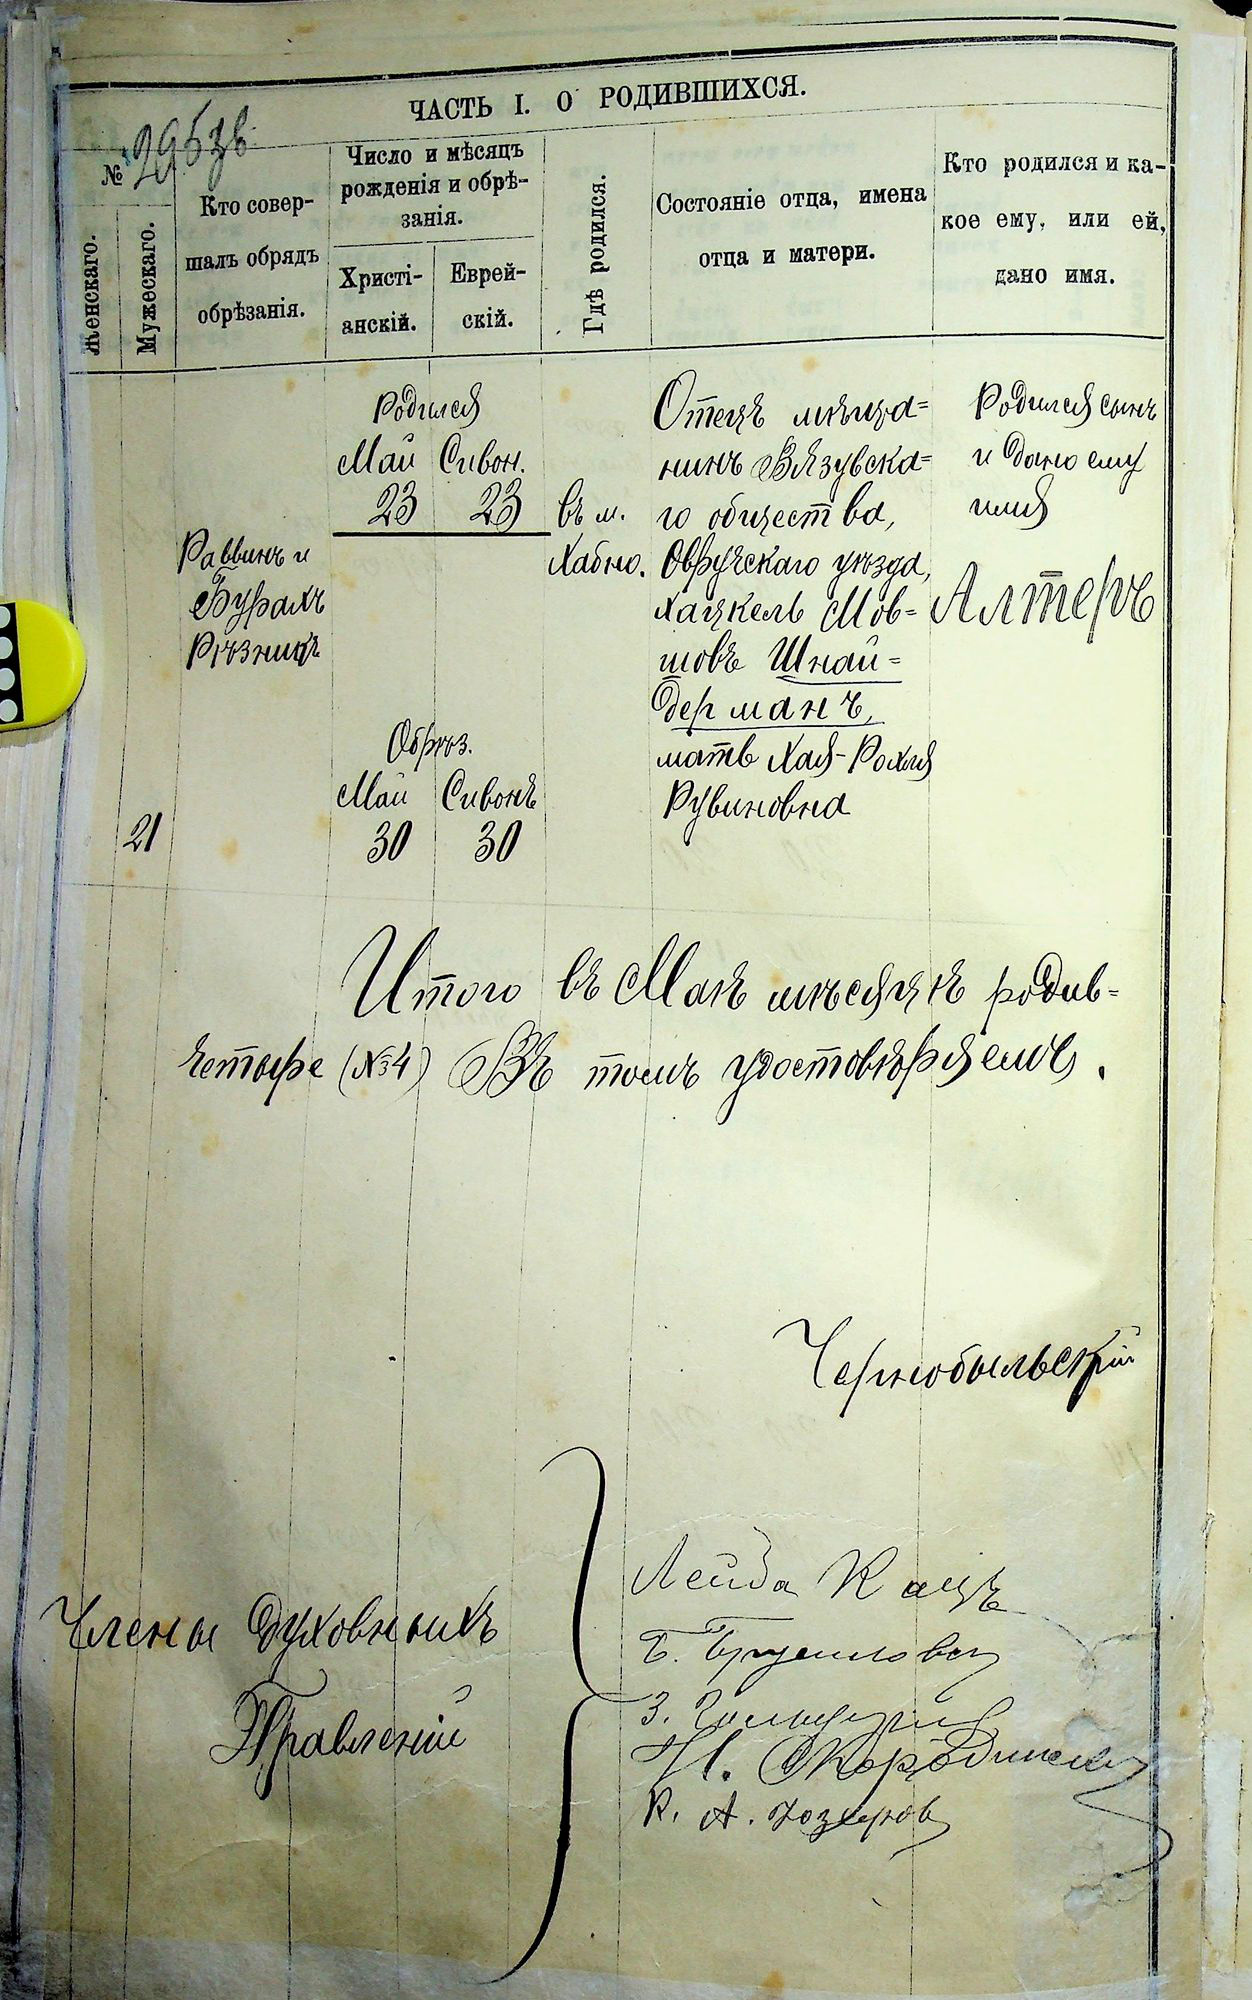 ЧАСТЬ I. О РОДИВШИХСЯ.
295зв.
№
Женскаго.
Мужескаго.
Кто совер-
шалъ обрядъ
обрѣзанія.
Число и мѣсяцъ
рожденія и обрѣ-
занія.
Христі-
анскій.
Еврей-
скій.
Гдѣ родился.
Состояніе отца, имена
отца и матери.
Кто родился и ка-
кое ему, или ей,
дано имя.
21
Раввинъ и
Бурахъ
Рѣзникъ
Родился
Май Сивон.
23 23
Обрѣз.
Май Сивонъ
30 30
въ м.
Хабно.
Отецъ мѣща=
нинъ Вязувска=
го общества,
Овручскаго уѣзда,
Хацкель Мов=
шовъ Шнай=
дерманъ,
мать Хая-Рохля
Рувиновна
Родился сынъ
и дано ему
имя
Алтеръ
Итого въ Маѣ мѣсяцѣ родив=
четыре (№ 4) Въ томъ удостовѣряемъ.
Чернобыльскій
Члены Духовныхъ
Правленій
Лейба Кацъ
Б.
З.
Н.
К. А.